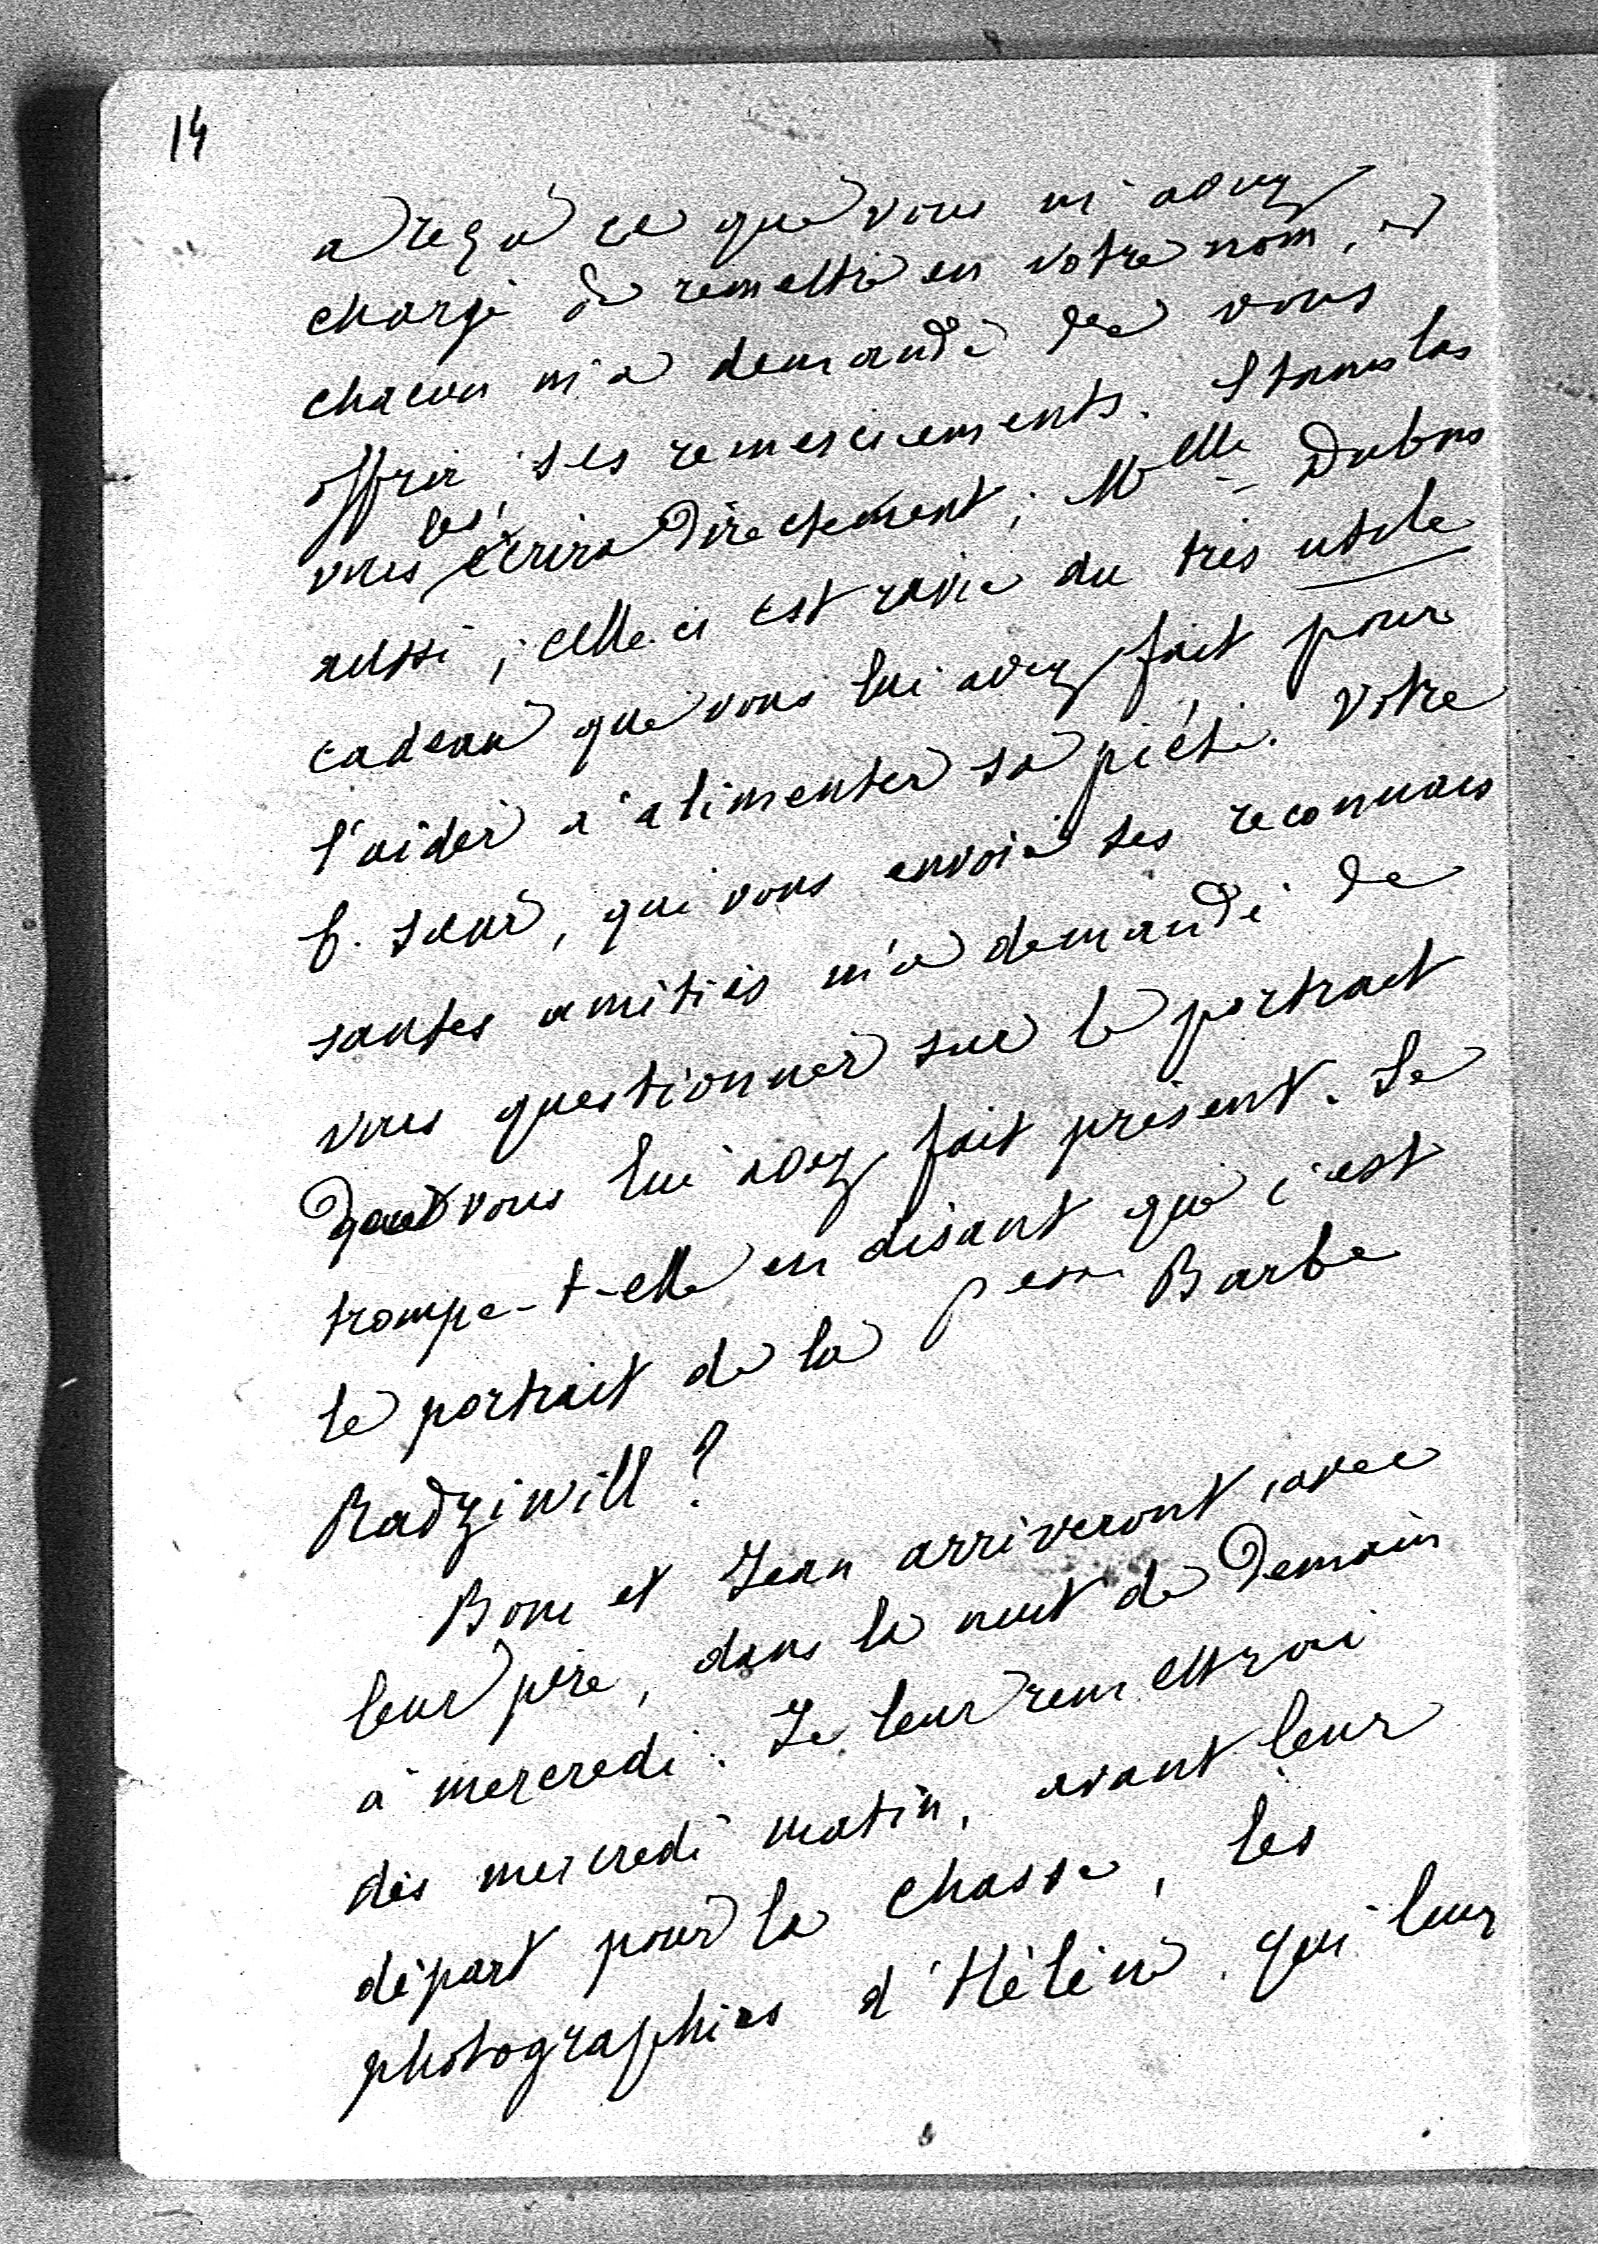 14
a reçu ce que vous m'avez
chargé de remettre en votre nom, et
chacun m'a demandé de vous
offrir ses remerciements. Stanislas
vous les écrira directement; Melle Dubois
aussi; celle-ci est ravie du très utile
cadeau que vous lui avez fait pour
l'aider à alimenter sa piété. Votre
b. soeur, qui vous envoie ses reconnais
santes amitiés m'a demandé de
vous questionner sur le portrait
dont vous lui avez fait présent. Se
trompe-t-elle en disant que c'est
le portrait de la Pesse Barbe
Radziwill?
Boni et Jean arriveront, avec
leur père, dans la nuit de demain
à mercredi. Je leur remettrai
dès mercredi matin, avant leur
départ pour la chasse, les
photographies d'Hélène qui leur